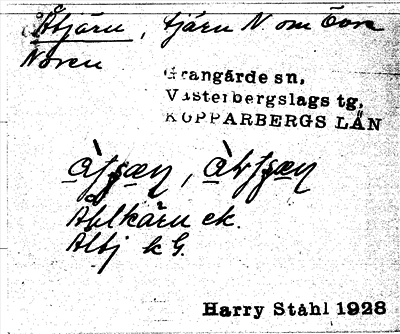 Åtjärn, tjärn N. om Övre
Noren
Grangärde sn,
Västerbergslags tg,
KOPPARBERGS LÄN
Ahlkärn ek.
k G.
Harry Ståhl 1928